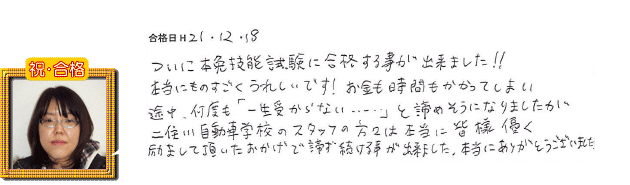 合格日 H 21・12・18
祝・合格
ついに本免技能試験に合格する事が出来ました!!
本当にものすごくうれしいです! お金も時間もかかってしまい
途中、何度も「一生受からない……」と諦めそうになりましたが
二俣川自動車学校のスタッフの方々は本当に皆様優く
励まして頂いたおかげで諦ず続ける事が出来ました。本当にありがとうございました